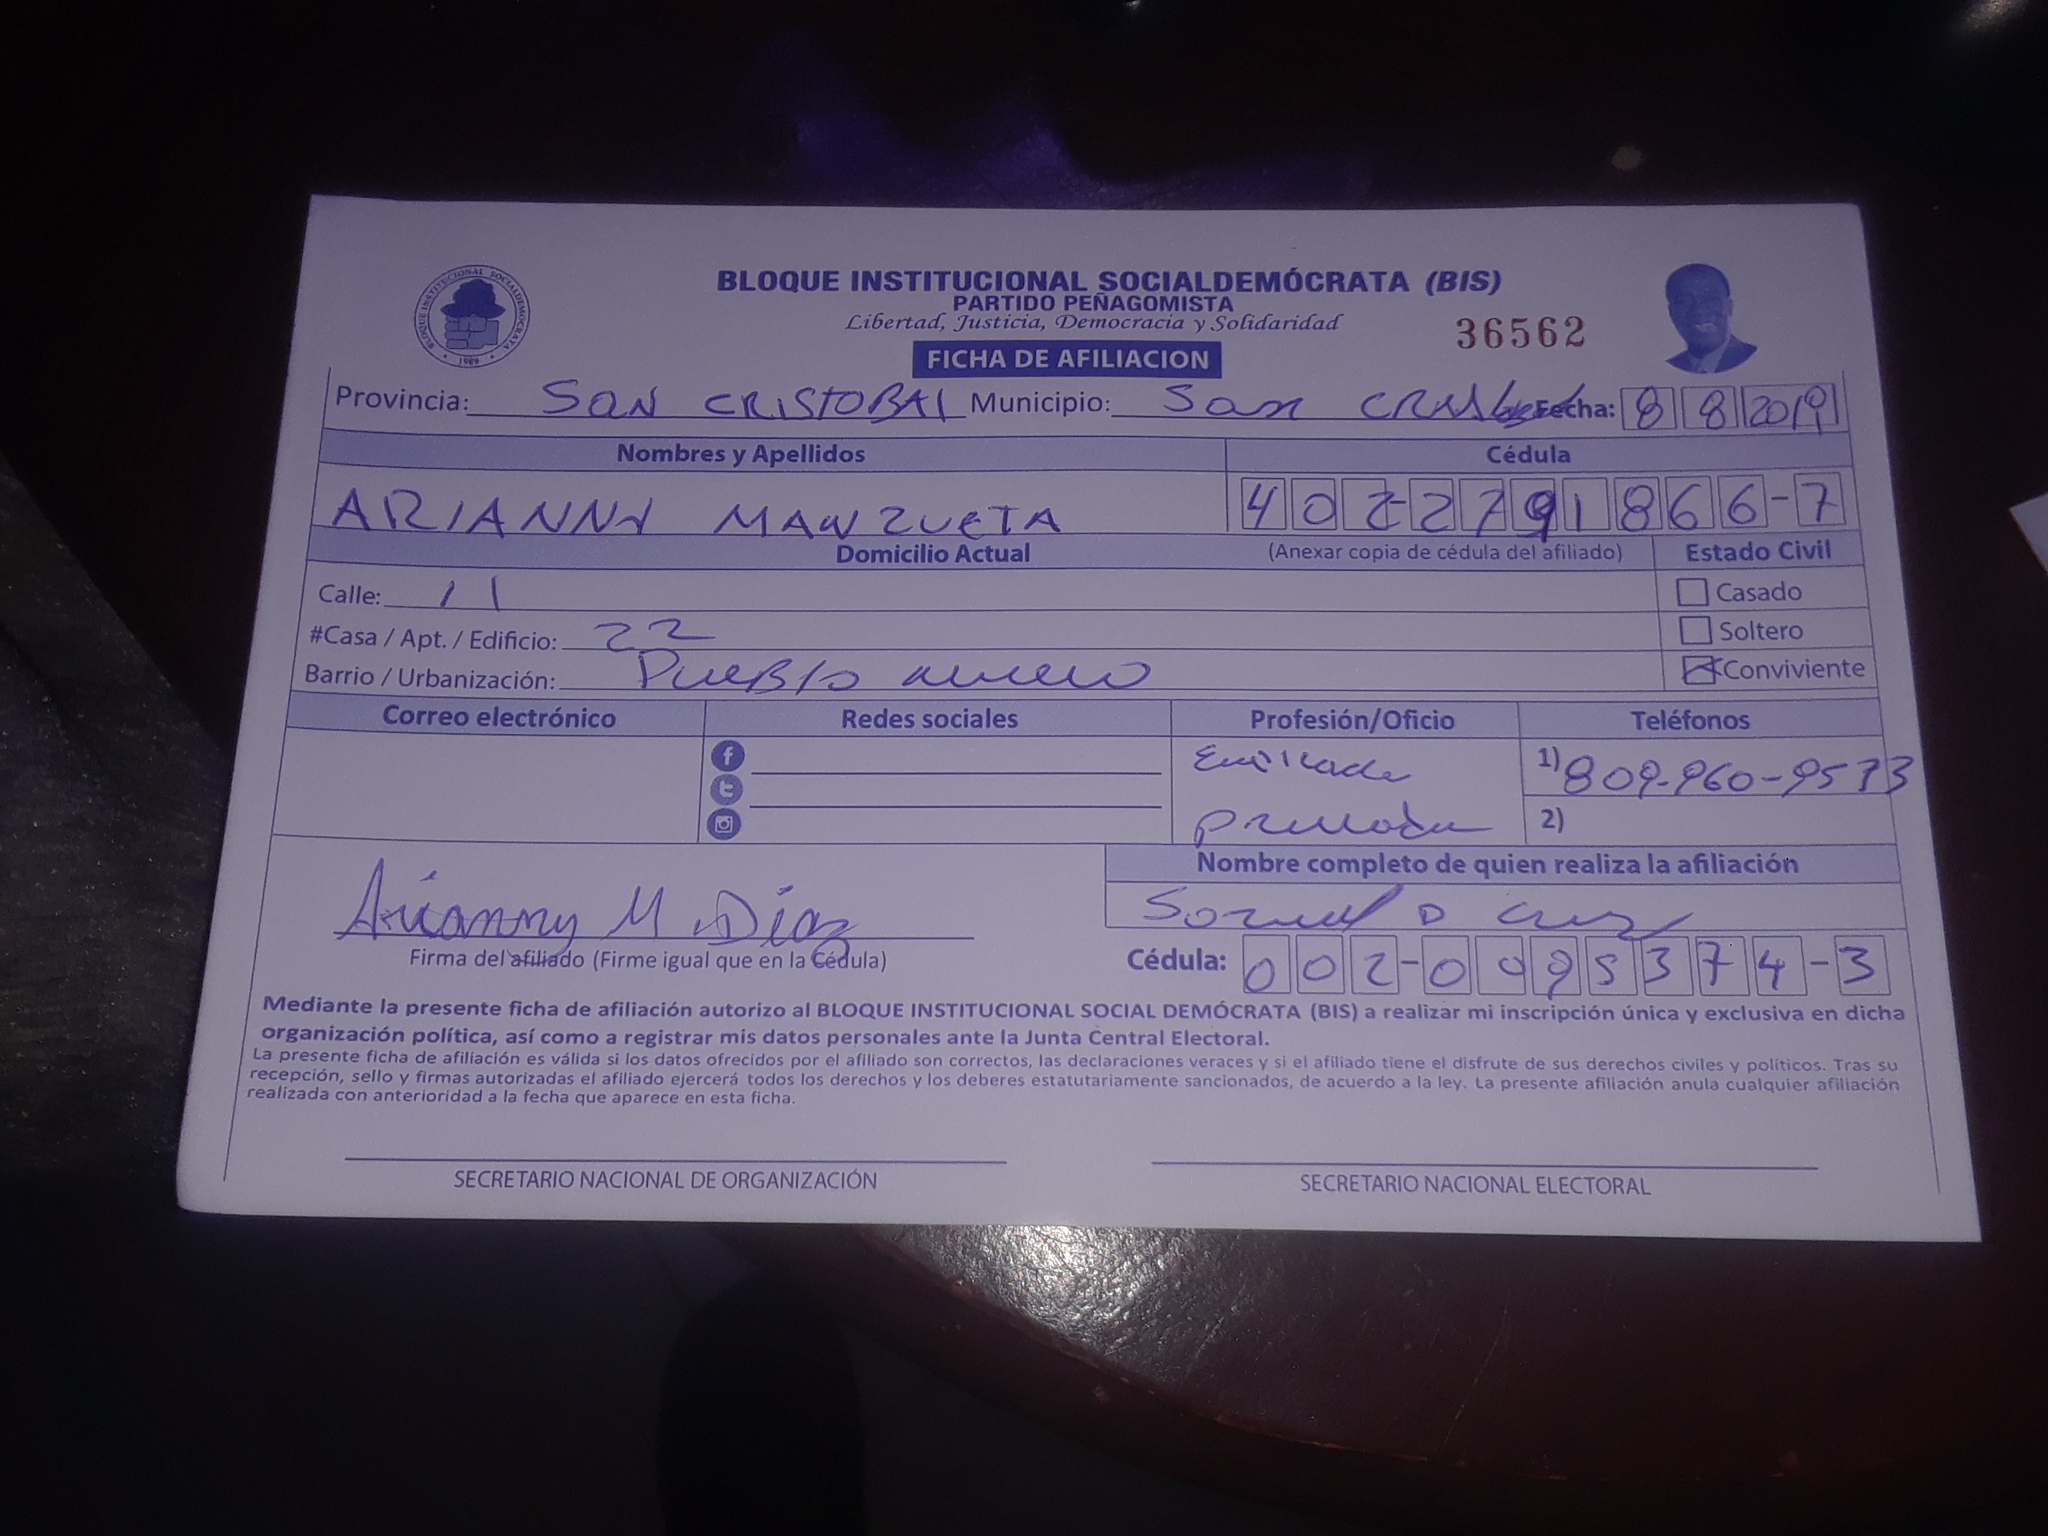 BLOQUE INSTITUCIONAL SOCIALDEMÓCRATA (BIS)
PARTIDO PEÑAGOMISTA
Libertad, Justicia, Democracia y Solidaridad
BLOQUE INSTITUCIONAL SOCIALDEMOCRATA
1989
36562
FICHA DE AFILIACION
Provincia: SAN CRISTOBAL Municipio: San Fecha: 8 8 2019
Nombres y Apellidos Cédula
ARIANNY MANZUETA 402-2791866-7
Domicilio Actual (Anexar copia de cédula del afiliado) Estado Civil
Calle: 11 Casado
#Casa / Apt. / Edificio: 22 Soltero
Barrio / Urbanización: Pueblo nuevo Conviviente
Correo electrónico Redes sociales Profesión/Oficio Teléfonos
1) 809-960-9533
2)
Nombre completo de quien realiza la afiliación
Arianny M. Díaz
D Cruz
Firma del afiliado (Firme igual que en la Cédula) Cédula: 002-0095374-3
Mediante la presente ficha de afiliación autorizo al BLOQUE INSTITUCIONAL SOCIAL DEMÓCRATA (BIS) a realizar mi inscripción única y exclusiva en dicha
organización política, así como a registrar mis datos personales ante la Junta Central Electoral.
La presente ficha de afiliación es válida si los datos ofrecidos por el afiliado son correctos, las declaraciones veraces y si el afiliado tiene el disfrute de sus derechos civiles y políticos. Tras su
recepción, sello y firmas autorizadas el afiliado ejercerá todos los derechos y los deberes estatutariamente sancionados, de acuerdo a la ley. La presente afiliación anula cualquier afiliación
realizada con anterioridad a la fecha que aparece en esta ficha.
SECRETARIO NACIONAL DE ORGANIZACIÓN SECRETARIO NACIONAL ELECTORAL